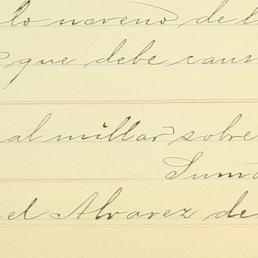 lo noveno de l
que debe caus
al millar sobre
Suma
el Alvarez de